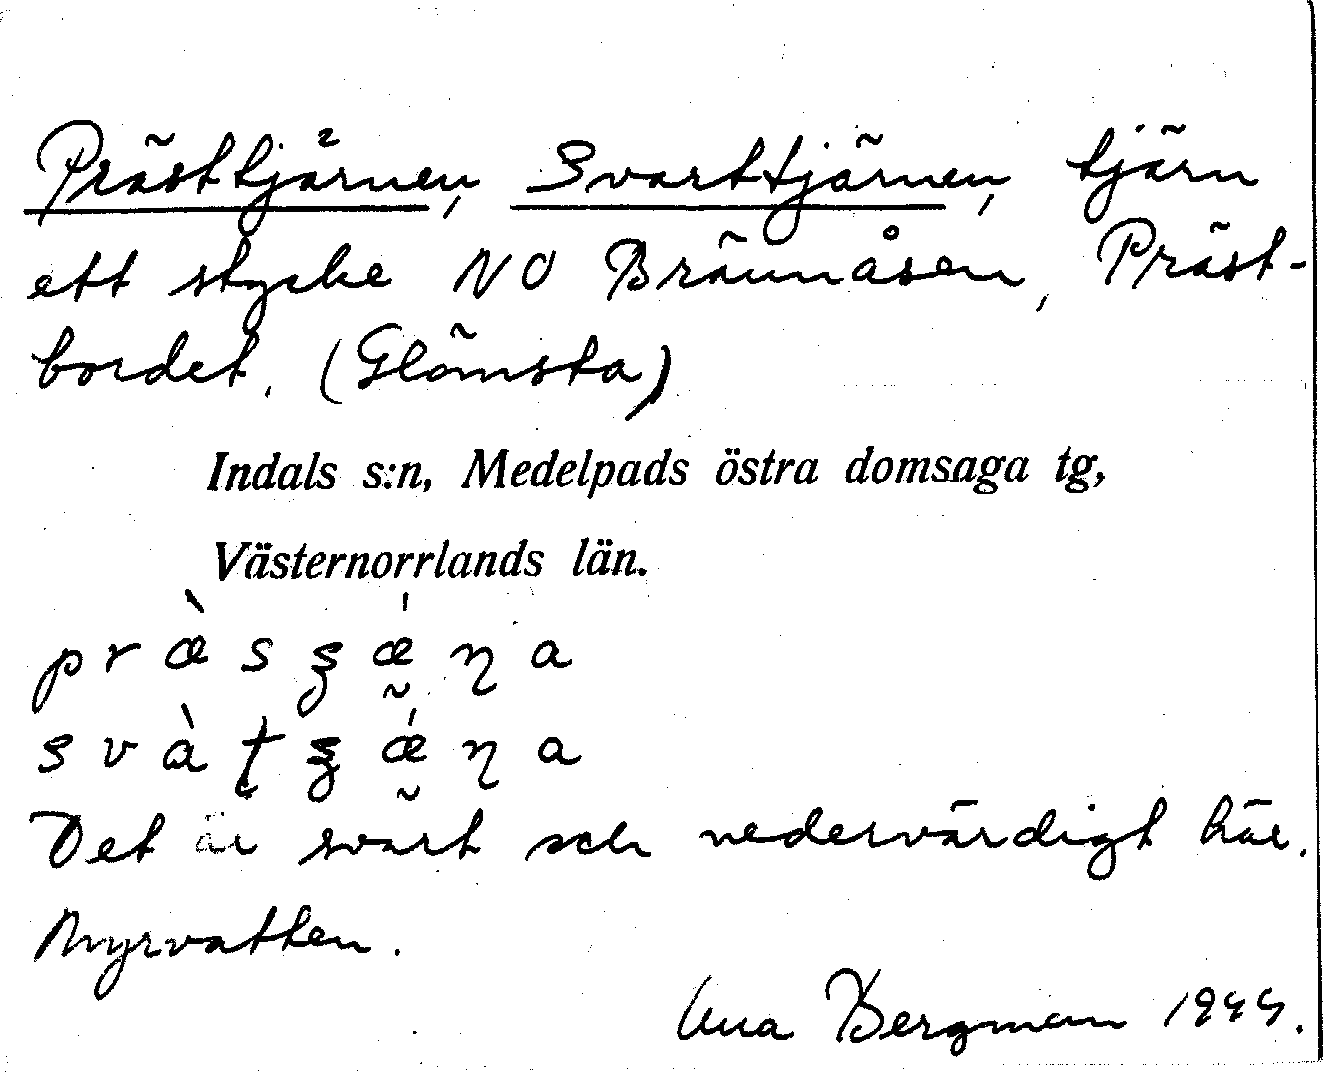 Prästtjärnen, Svarttjärnen, tjärn
ett stycke NO Brännåsen, Präst-
bordet. (Glömsta)
Indals s:n, Medelpads östra domsaga tg,
Västernorrlands län.
Det är svart och nedervärdigt här.
Myrvatten.
Bergman